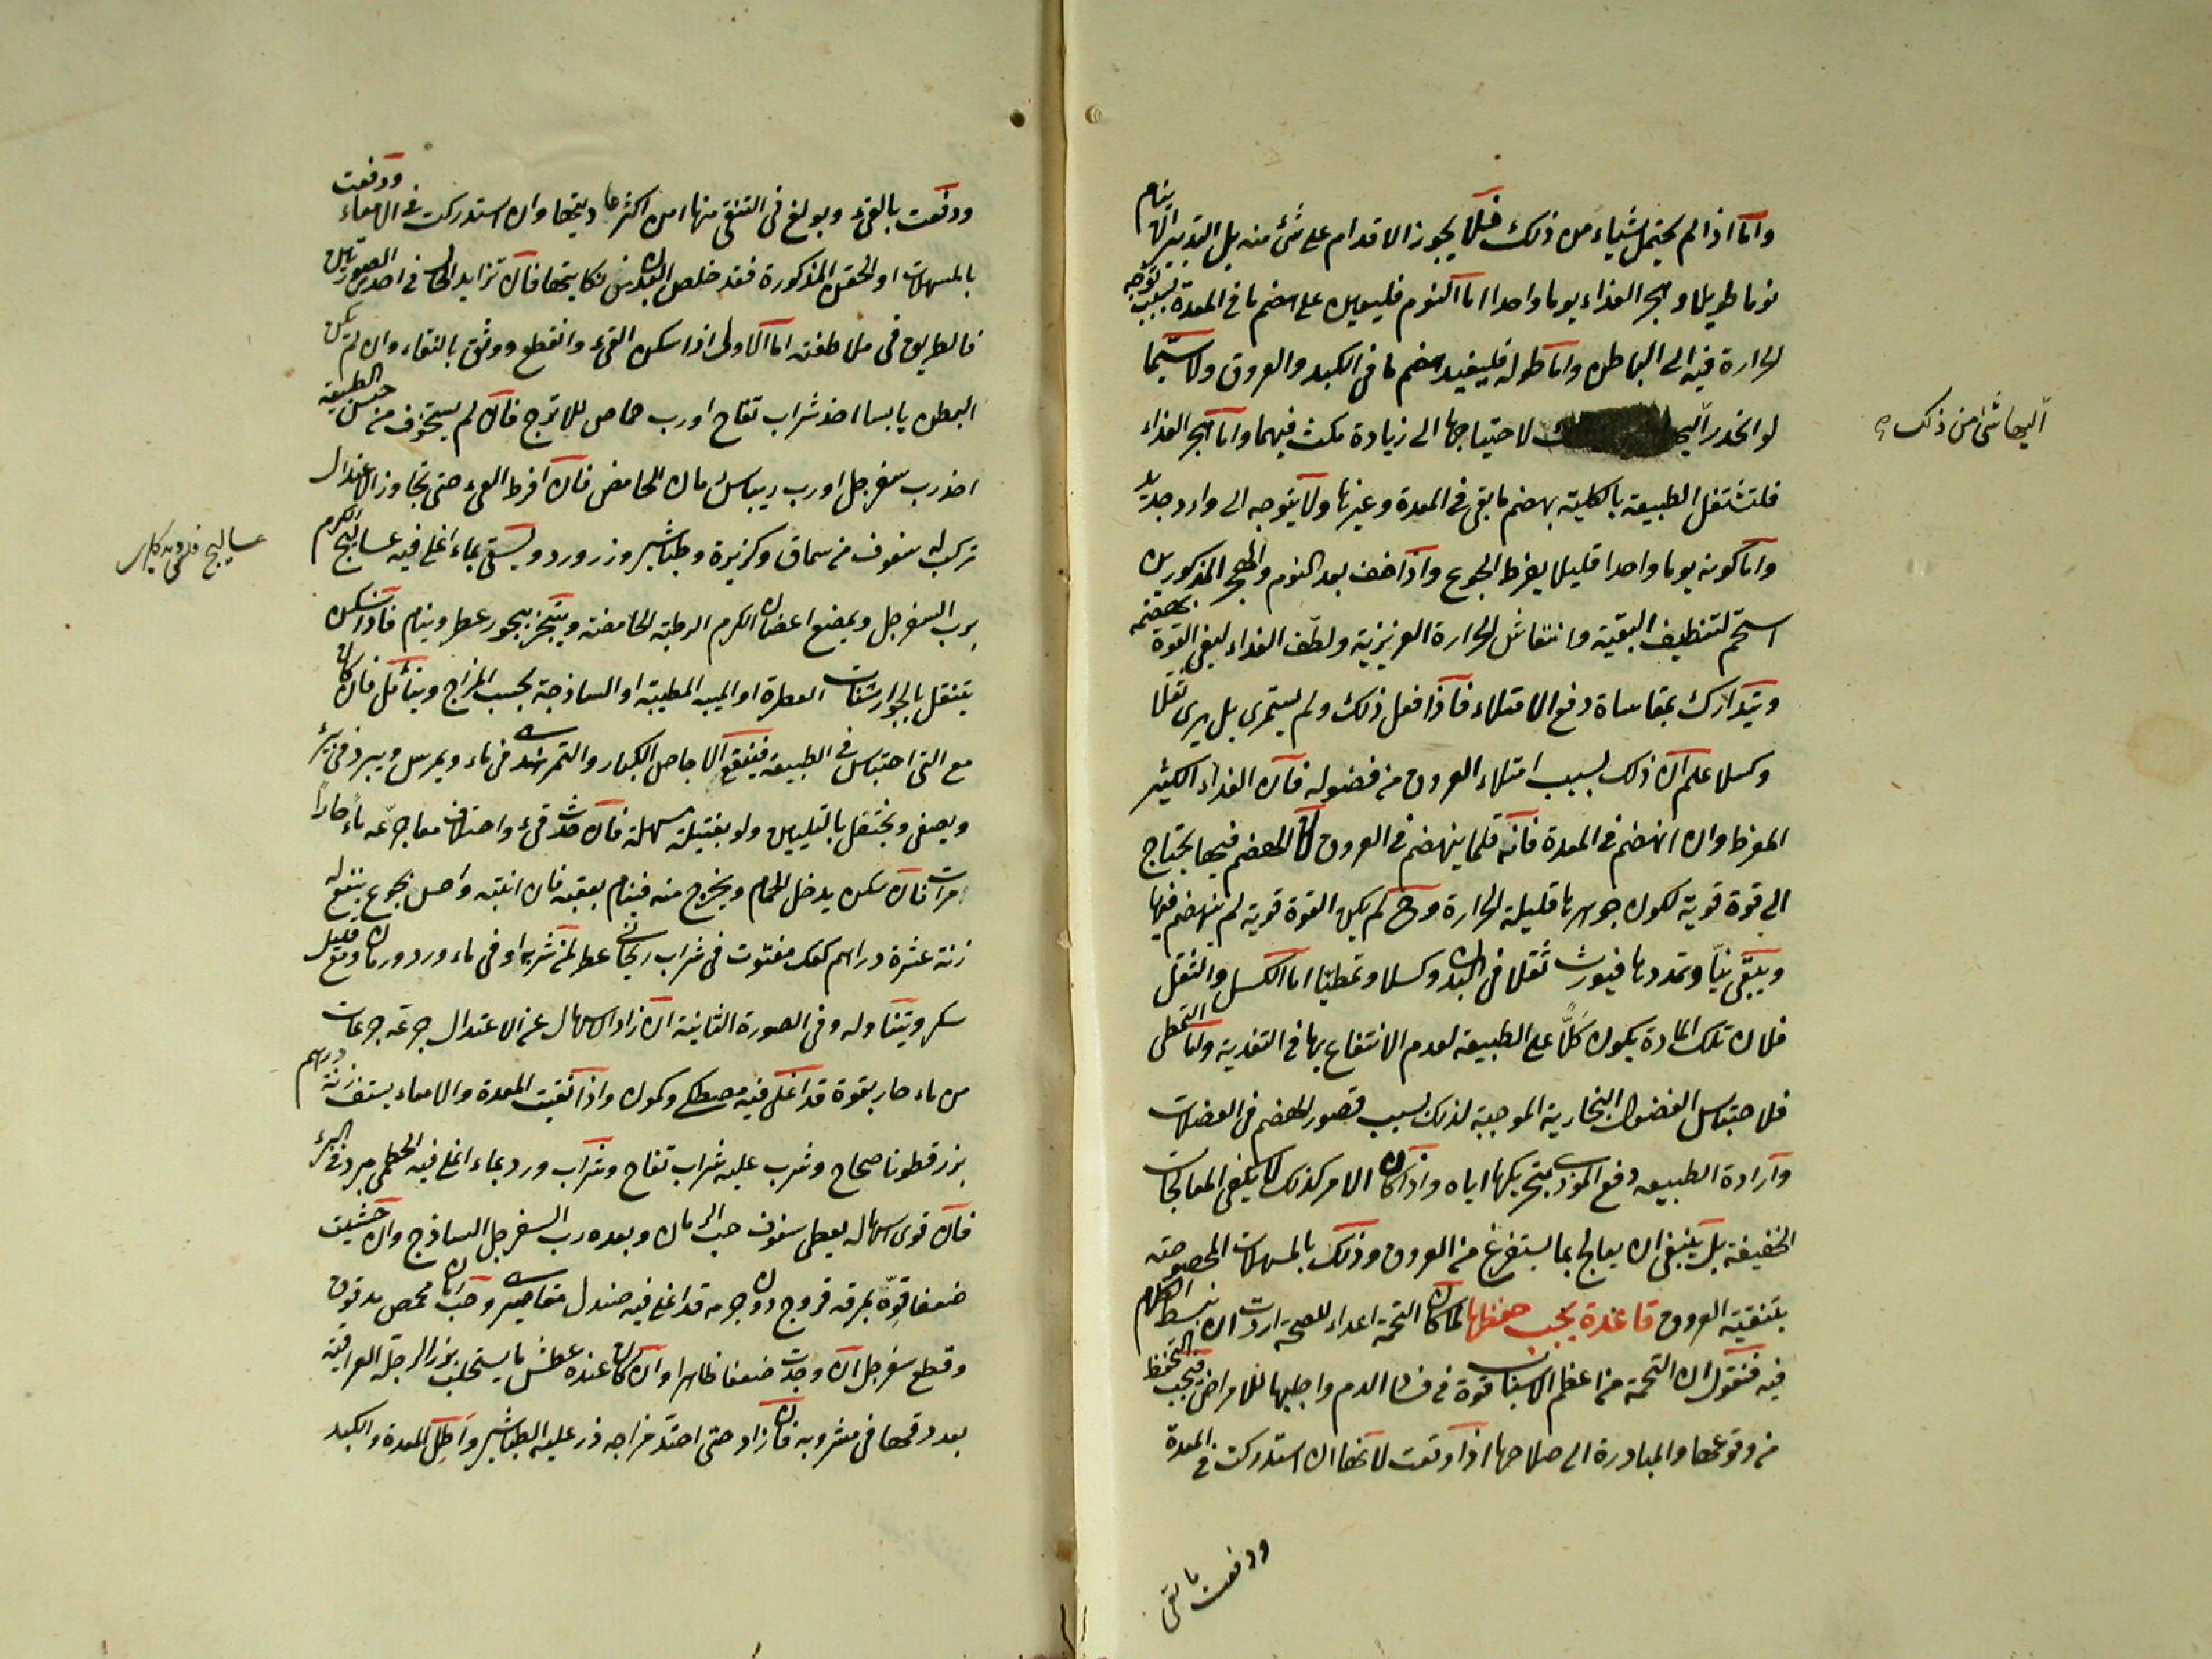 واما اذا لم يحتمل شيئاء من ذلك فلا يجوز الاقدام على شئ منه بل التدبير ان ينام
نوما طويلا وهجر الغذاء يوما واحدا اما النوم فليعين على هضم ما في المعدة بسبب توجه
الحرارة فيه الى الباطن واما طوله فليفيد هضم ما في الكبد والعروق ولا سيما
لو انحدر اليها لاحتياجها الى زيادة مكث فيهما واما هجر الغذاء
اليها شئ من ذلك
فلتشتغل الطبيعة بالكلية بهضم ما بقى في المعدة وغيرها ولا يتوجه الى وارد جديد
واما كونه يوما واحدا فليلا يفرط الجوع واذا خف بعد النوم والهجر المذكورين
استحم لتنظيف البقية وانتعاش الحرارة الغريزية ولطف الغذاء ليفى القوة بهضمه
ويتدارك بمقاساة دفع الامتلاء فاذا فعل ذلك ولم يستمرئ بل يرى ثقلا
وكسلا علم ان ذلك بسبب امتلاء العروق من فضوله فان الغذاء الكثير
المفرط وان انهضم في المعدة فانه قلما ينهضم في العروق لان الهضم فيها يحتاج
الى قوة قوية لكون جوهرها قليلة الحرارة وح لم يكن القوة قوية لم ينهضم فيها
ويبقى نيّا وتمددها فيورث ثقلا في البدن وكسلا وتمطيا اما الكسل والثقل
فلان تلك المادة يكون كلّا على الطبيعة لعدم الانتفاع بها في التغذية واما التمطى
فلاحتباس الفضول البخارية الموجبة لذلك بسبب قصور الهضم في العضلات
وارادة الطبيعه دفع الموذى بتحريكها اياه واذا كان الامر كذلك لا يكفى المعالجات
الخفيفة بل ينبغى ان يعالج بما يستفرغ من العروق وذلك بالمسهلات المخصوصة
بتنقية العروق قاعدة يجب حفظها لما كان التخمة اعداء للصحة اردت ان نبسط الكلام
فيه فنقول ان التخمة من اعظم الاسباب قوة في فساد الدم واجلبها للامراض فيجب التحفظ
من وقوعها والمبادرة الى صلاحها اذا وقعت لانها ان استدركت في المعدة
ودفعت بالقى
ودفعت بالقئ وبولغ في التنقى منها امن اكثرها ديتها وان استدركت في الامعاء ودفعت
بالمسهلات او الحقن المذكورة فقد خلص البدن من نكايتها فان تزايد الحال في احدى الصورتين
فالطريق في ملاطفته اما الاولى اذا سكن القئ وانقطع ووثق بالنقاء وان لم يكن
البطن يابسا اخذ شراب تفاح او رب حماض الاترج فان لم يستخوف من حبس الطبيعة
اخذ رب سفرجل او رب ريباس او رمان الحامض فان افرط القئ حتى تجاوز الاعتدال
تركب له سفوف من سماق وكزبرة وطباشير وزر ورد ويسقى بماء اغلى فيه عساليج الكرم
برب السفرجل ويمضع اغصان الكرم الرطبة الحامضة ويتبخر ببخور عطر وينام فاذا سكن
يتنقل بالجوارشنات العطرة او الميبه المطيبة او الساذجة بحسب المزاج ويتأمل فان كان
مع القئ احتباس في الطبيعة فينقع الاجاص الكبار والتمر هندى في ماء ويمرس ويبرد في بئر
ويصفى ويختفل بالتليين ولو بفتيلة مسهلة فان حدث قئ واختلاف معا جرعه ماء حارا
مرات فان سكن يدخل الحمام ويخرج منه فينام بعقبه فان انتبه واحس بجوع ينقع له
زنة عشرة دراهم كعك مفتوت في شراب ريحانى عطر لمن شربه او في ماء ورد ورمان ومع قليل
سكر ويتناوله وفي الصورة الثانية ان زاد الاسهال عن الاعتدال جرعه جرعات
من ماء حار بقوة قد اغلى فيه مصطكى وكمون واذا نقيت المعدة والامعاء يستف زنة درهم
بزر قطونا صحاح وشرب عليه شراب تفاح وشراب ورد بماء اغلى فيه الخطمى مبرد في البئر
فان قوى اسهاله يعطى سفوف حب الرمان وبعده رب السفرجل الساذج وان خشيت
ضعفا قوه بمرقه فروج دراجه قد اغلى فيه صندل مقاصيرى وحب رمان محمص مدقوق
وقطع سفرجل ان وجدت ضعفا ظاهرا وان كان عنده عطش ما يستحلب بزر الرجلة العراقية
بعد دقها في مشروبه فان زاد حتى احتد مزاجه ذر عليه الطباشير واطل المعدة والكبد